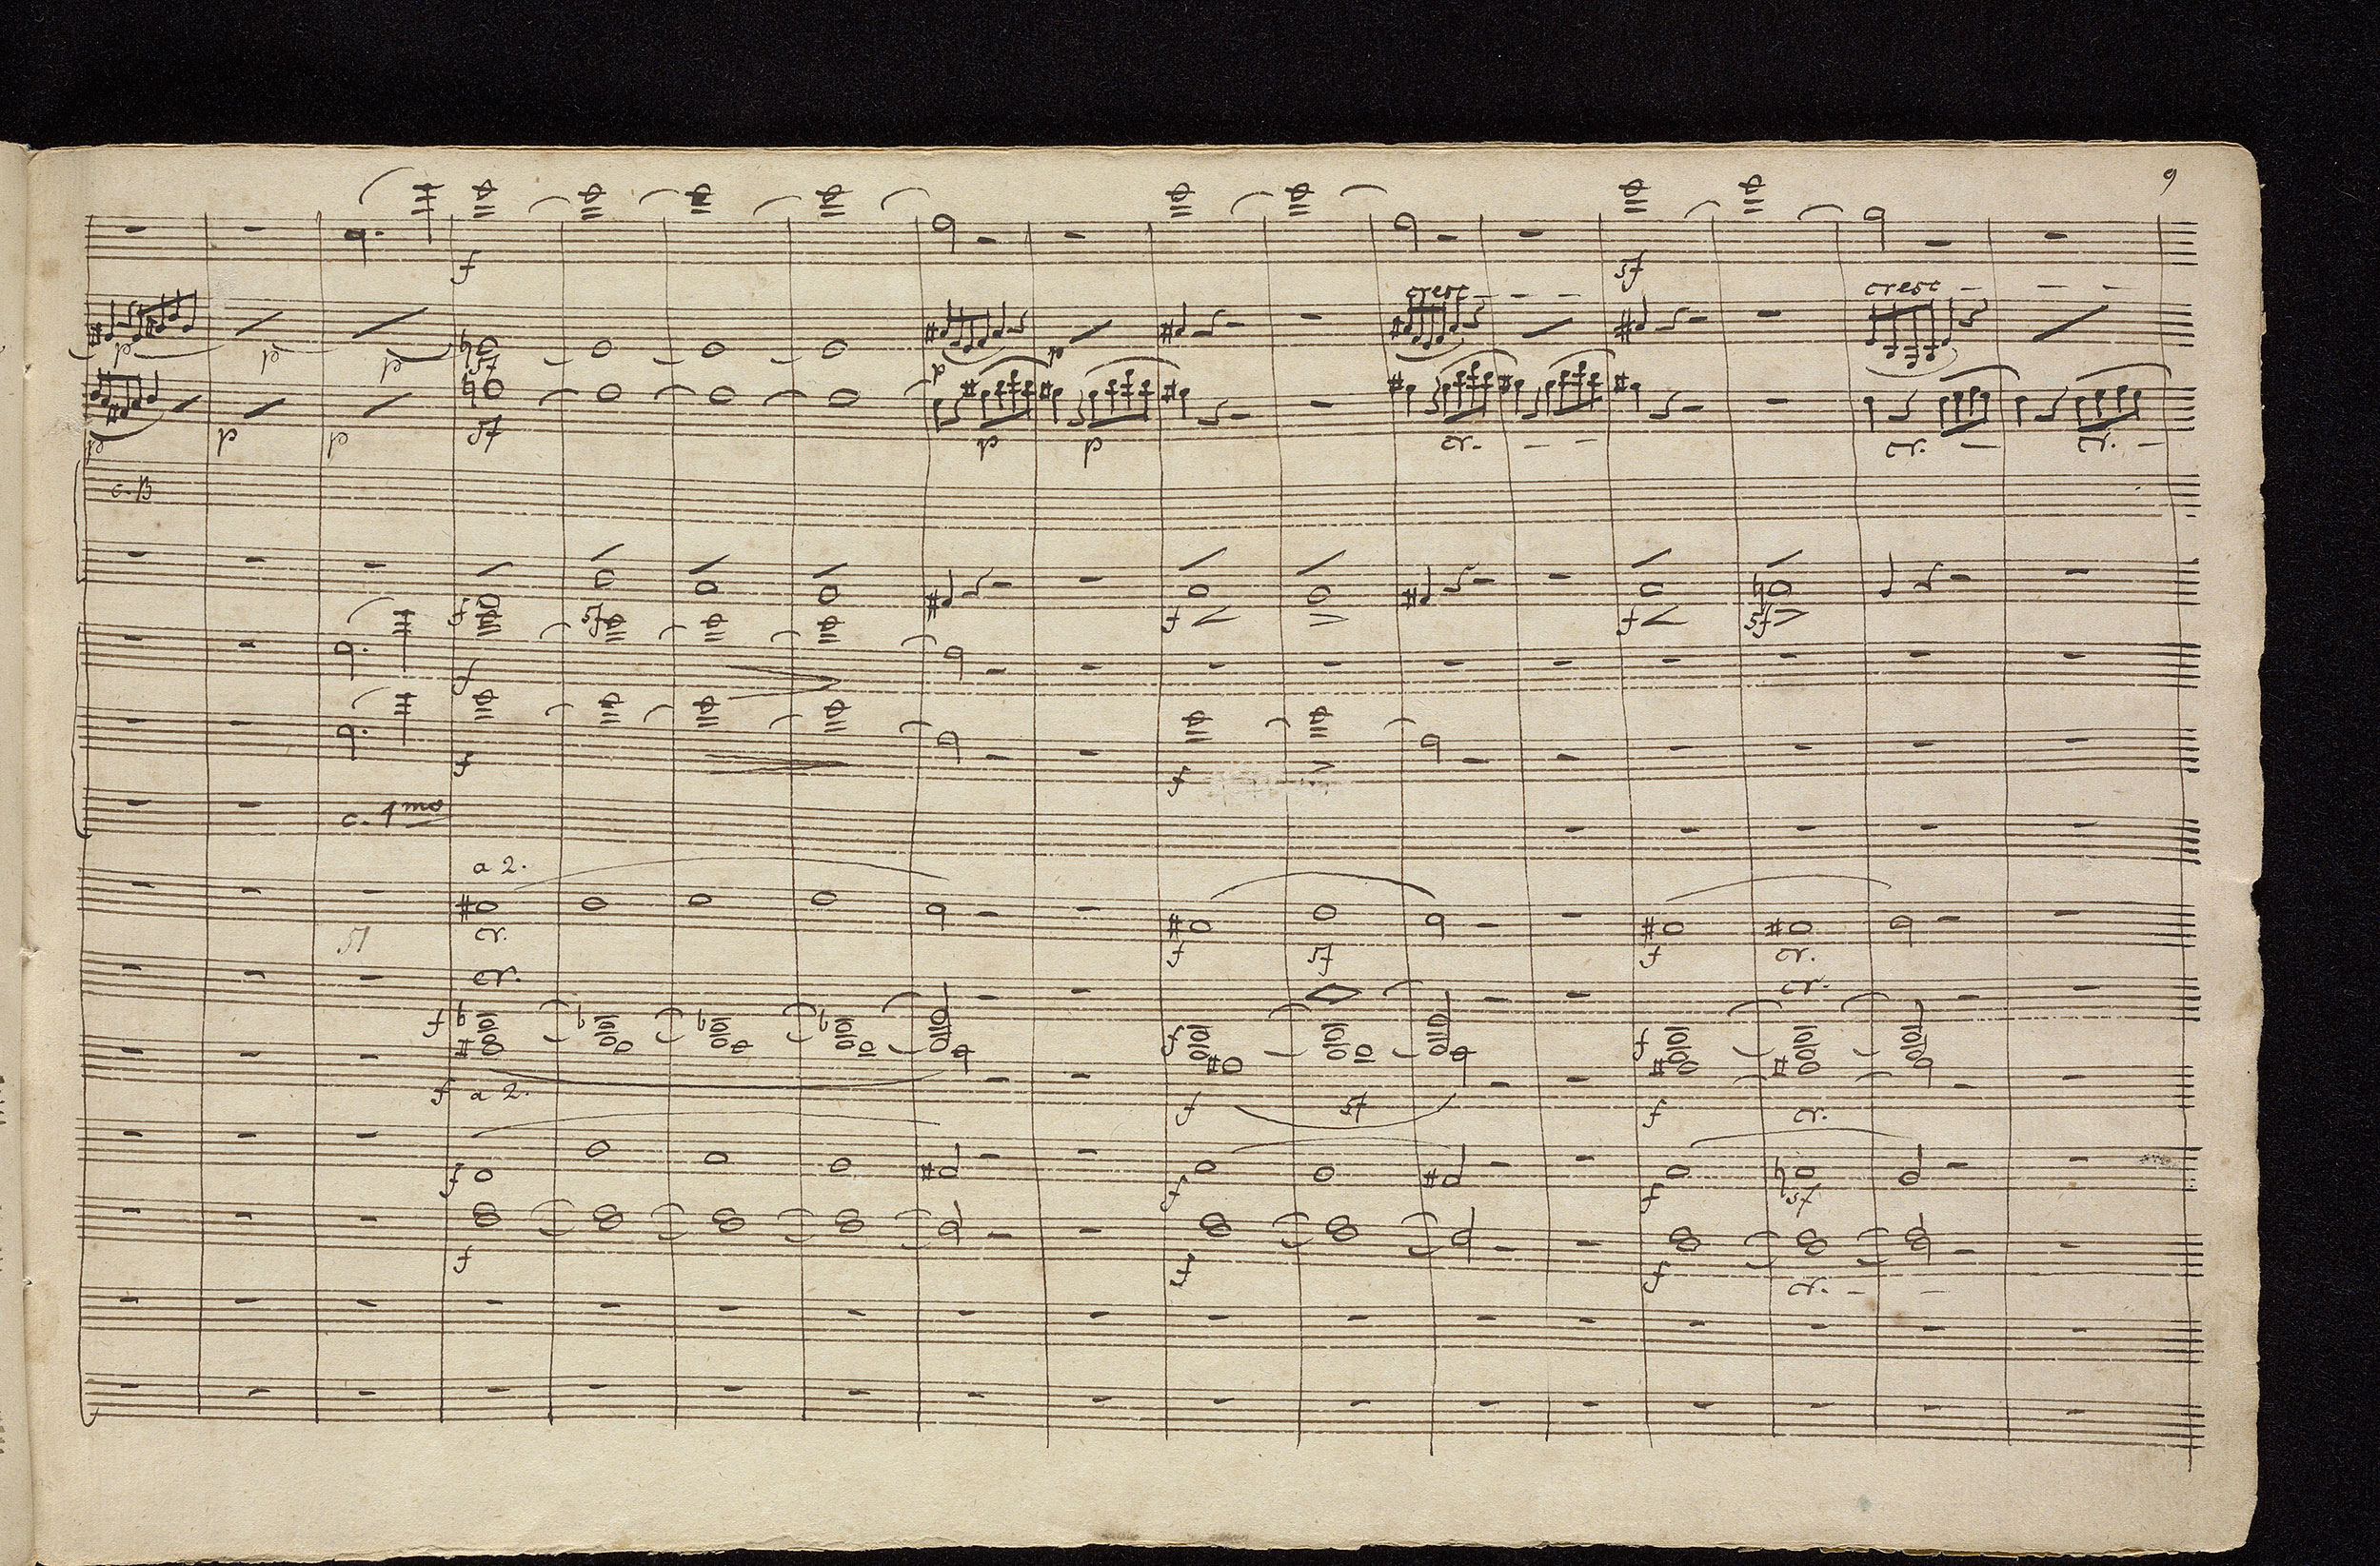 9
f
sf
cresc - - -
cresc - - -
p p p sf p p
p p p sf p p cr. - - cr. - cr. -
c. B
f sf f f sf
f
f f
c. 1mo
a 2.
cr. f sf f cr.
cr. cr.
f f f
f a 2. f sf f cr.
f f f sf
f f f
cr. - -